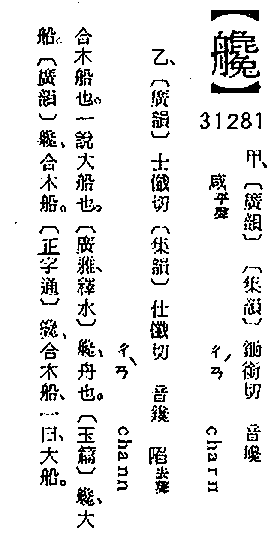 【艬】
31281
甲、〔廣韻〕〔集韻〕鋤銜切 音巉
咸平聲 ㄔㄢˊ charn
乙、〔廣韻〕士懺切〔集韻〕仕懺切 音鑱 陷去聲
ㄔㄢˋ chann
合木船也。一說大船也。〔廣雅、釋水〕艬、舟也。〔玉篇〕艬、大
船。〔廣韻〕艬、合木船。〔正字通〕艬、合木船、一曰、大船。